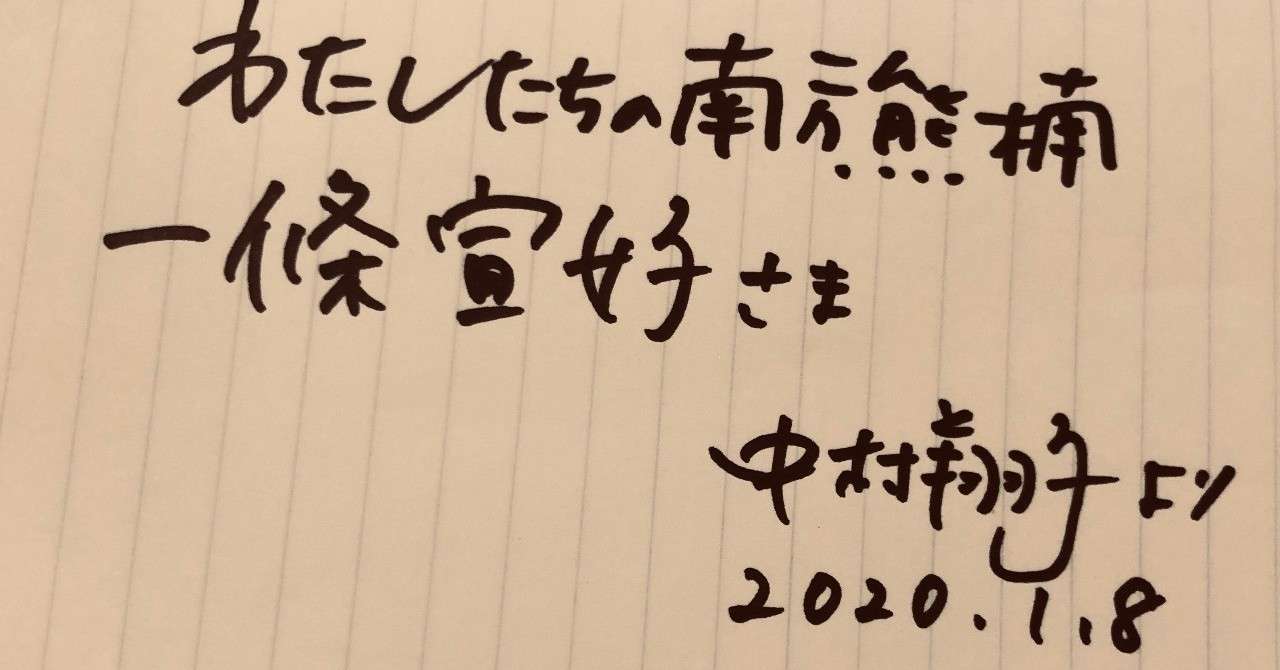 わたしたちの南方熊楠
一條宣好さま
中村翔子より
2020.1.8